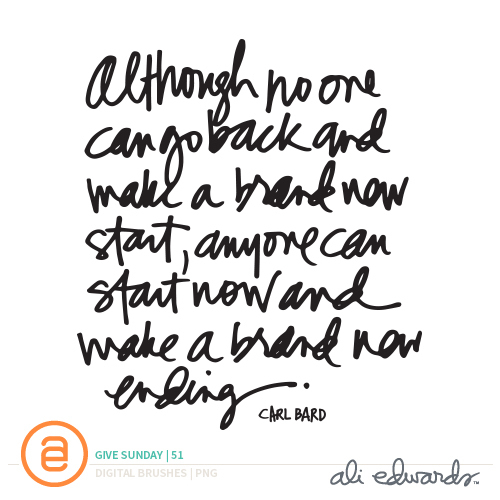 Although no one
can go back and
make a brand new
start, anyone can
start now and
make a brand new
ending.
CARL BARD
GIVE SUNDAY | 51
DIGITAL BRUSHES | PNG
ali edwards™